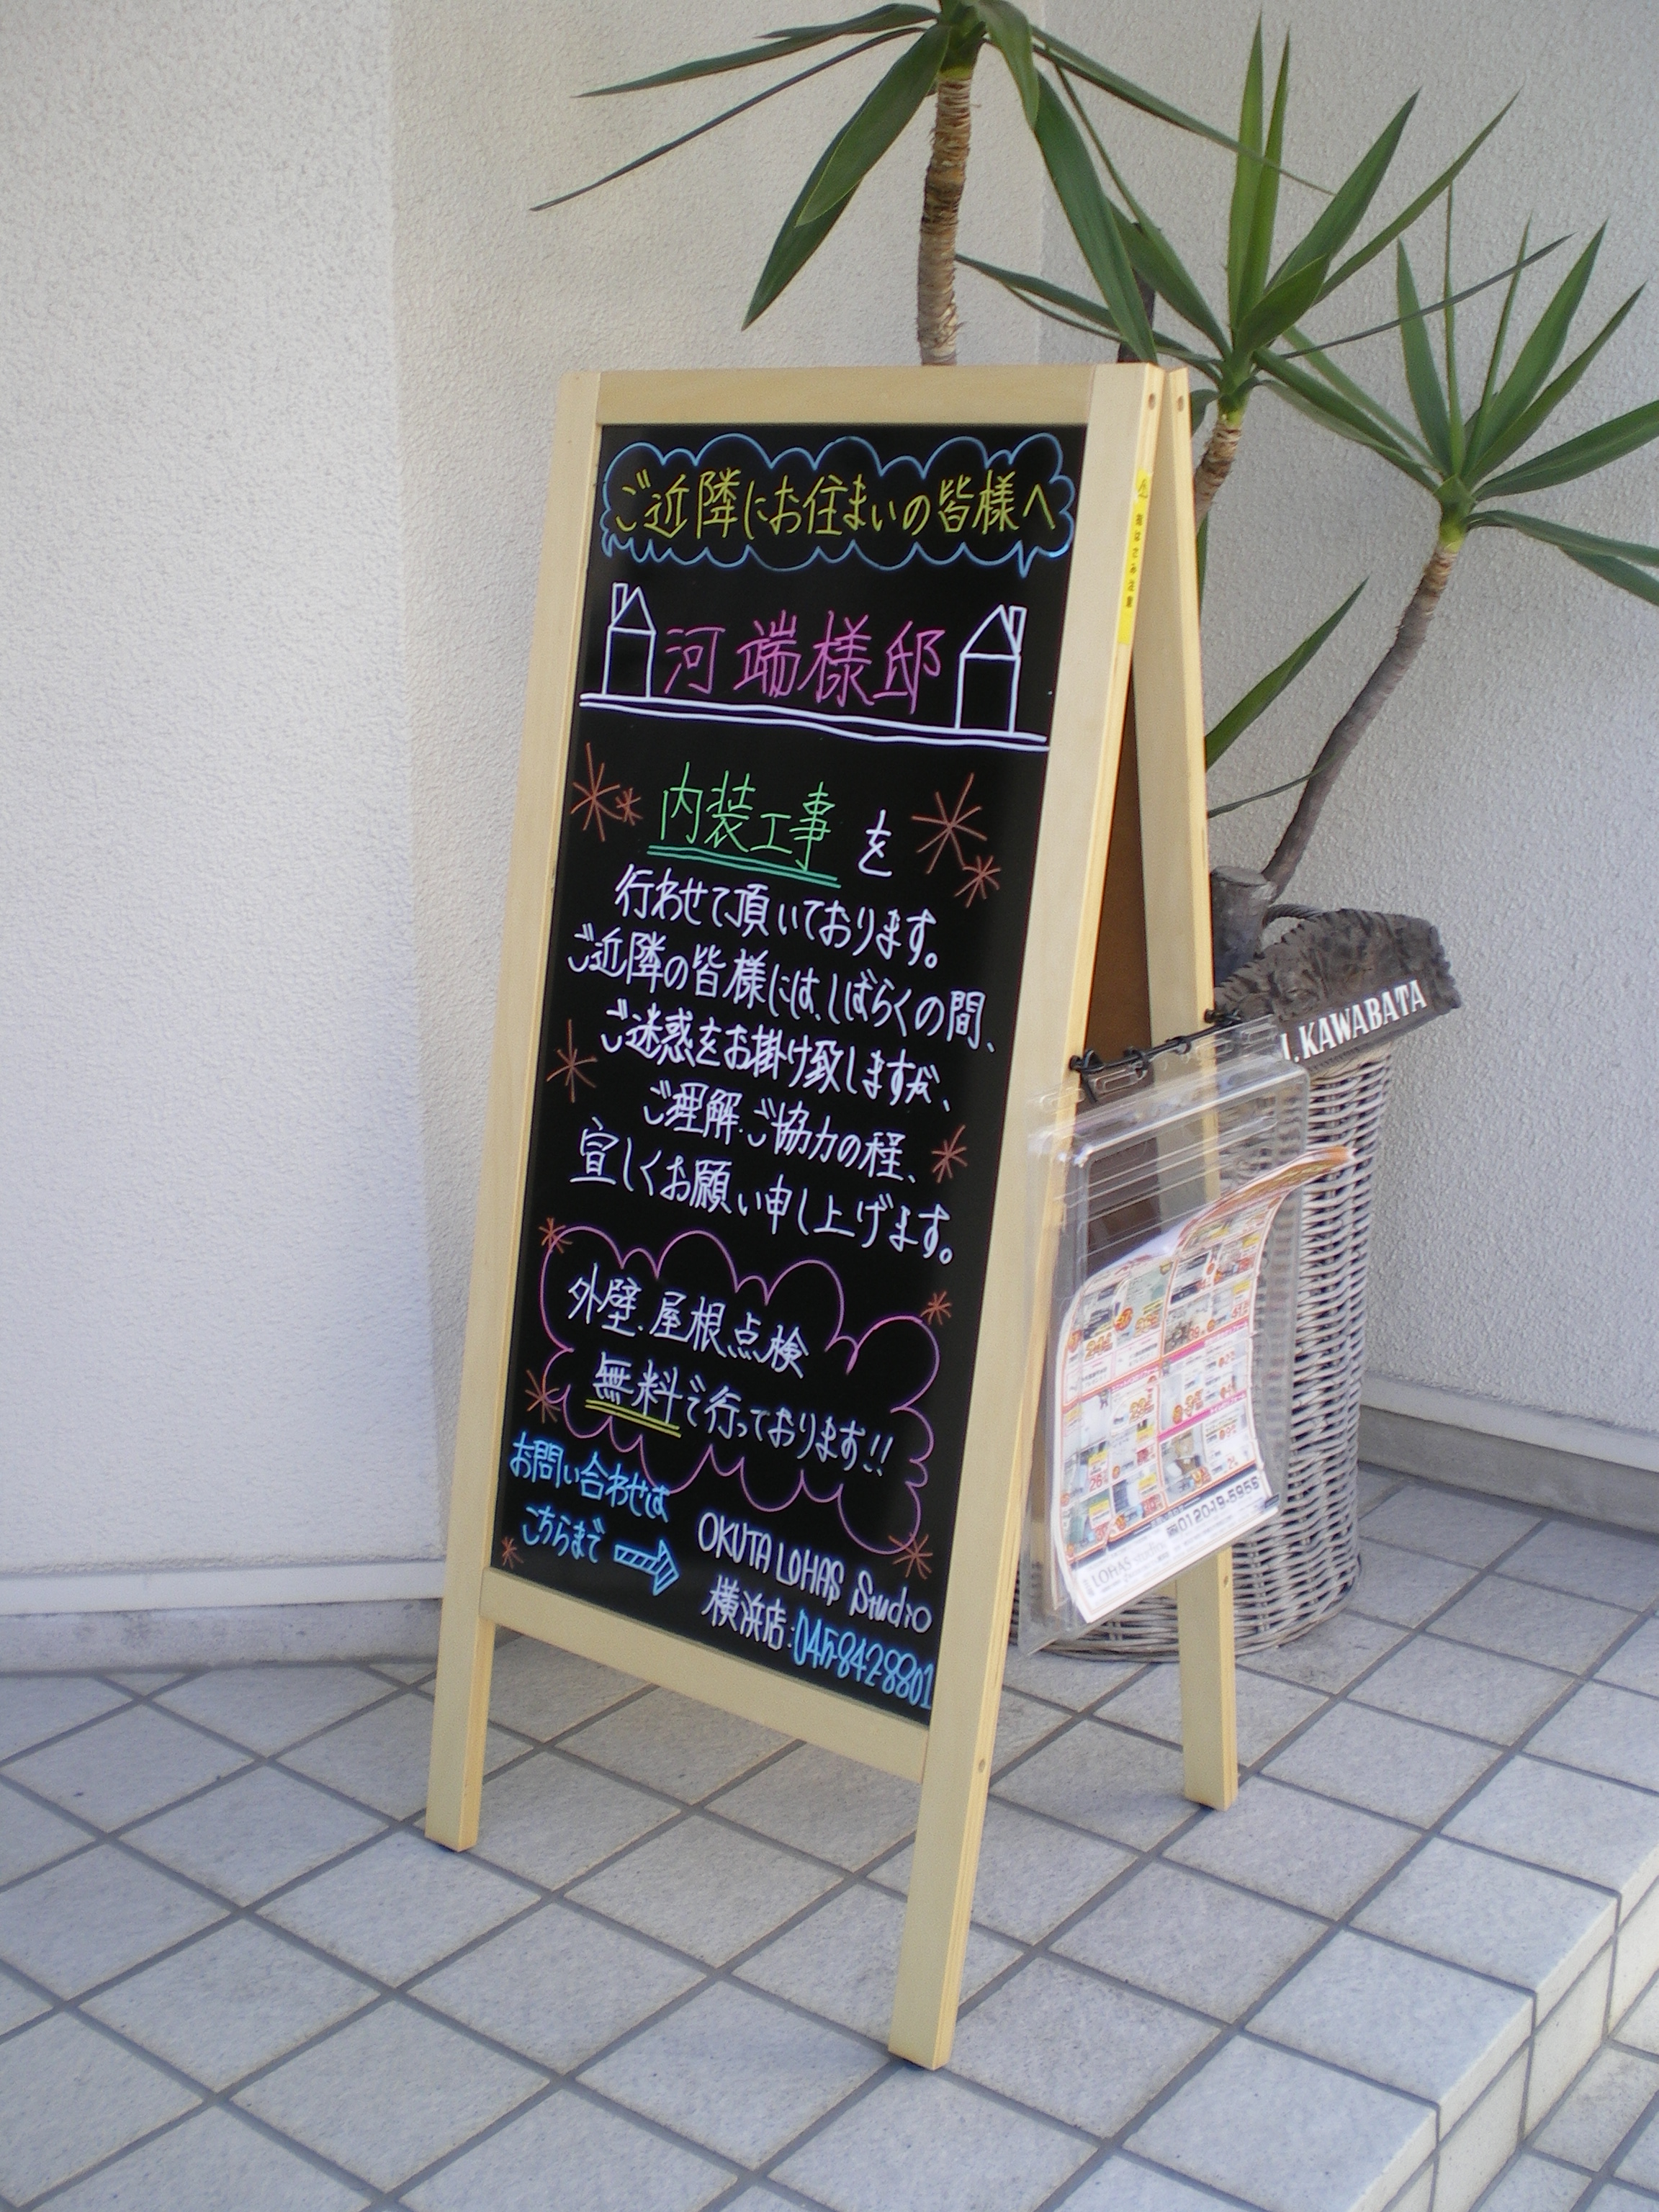 ご近隣にお住まいの皆様へ
河端様邸
内装工事を
行わせて頂いております。
ご近隣の皆様には、しばらくの間、
ご迷惑をお掛け致しますが、
ご理解.ご協力の程、
宜しくお願い申し上げます。
外壁.屋根点検
無料で行っております!!
お問い合わせは
こちらまで
OKUTA LOHAS Studio
横浜店:045-842-8801
指はさみ注意
I.KAWABATA
LOHAS studio
0120-19-5955